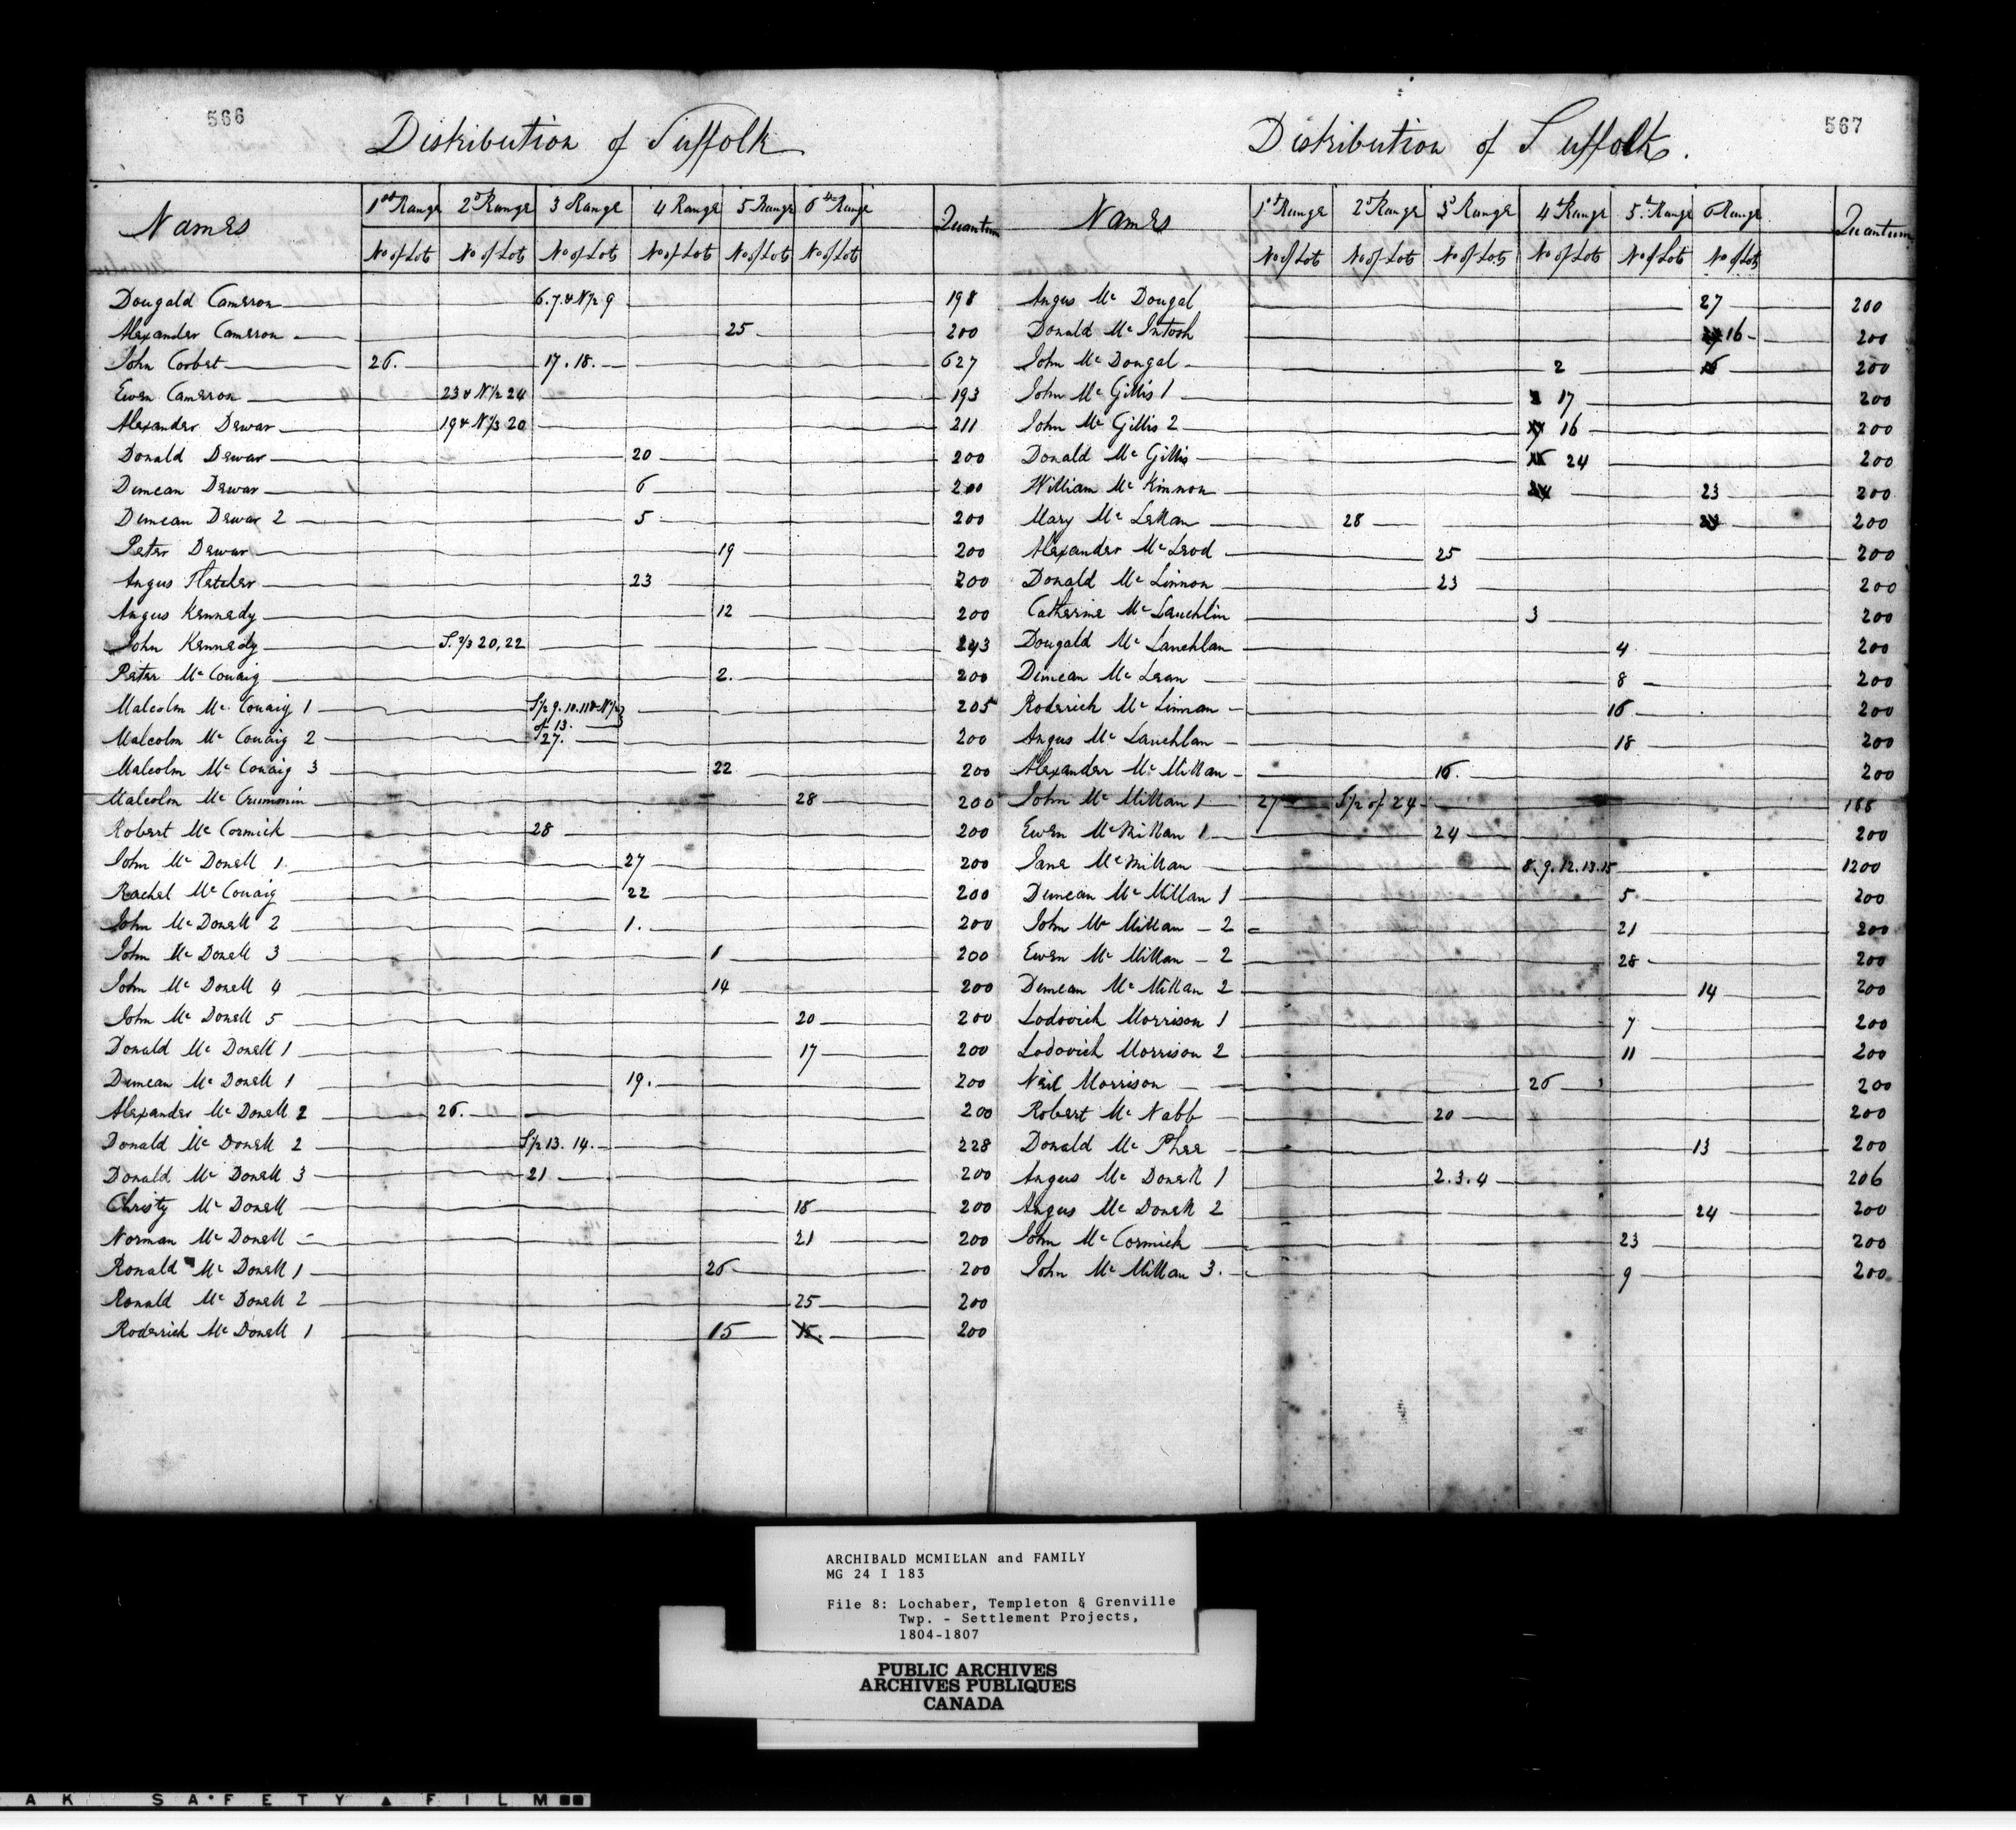 566
Distribution of Suffolk
Names 1st Range 2d Range 3 Range 4 Range 5 Range 6th Range Quantum
No of Lots No of Lots No of Lots No of Lots No of Lots No of Lots
Dougald Cameron 6.7.& N½ 9 198
Alexander Cameron 25 200
John Corbet 26. 17.18. 627
Ewen Cameron 23 & N½ 24 193
Alexander Dewar 19 & N⅓ 20 211
Donald Dewar 20 200
Duncan Dewar 6 200
Duncan Dewar 2 5 200
Peter Dewar 19 200
Angus Fletcher 23 200
Angus Kennedy 12 200
John Kennedy S. ⅔ 20, 22 243
Peter McCouaig 2. 200
Malcolm Mc Couaig 1 S½ 9.10.11 & N½ 205
of 13.
Malcolm Mc Couaig 2 27. 200
Malcolm Mc Couaig 3 22 200
Malcolm Mc Crummin 28 200
Robert Mc Cormick 28 200
John Mc Donell 1. 27 200
Rachel Mc Couaig 22 200
John Mc Donell 2 1. 200
John Mc Donell 3 1 200
John Mc Donell 4 14 200
John Mc Donell 5 20 200
Donald Mc Donell 1 17 200
Duncan Mc Donell 1 19. 200
Alexander Mc Donell 2 26. 200
Donald Mc Donell 2 S½ 13. 14. 228
Donald Mc Donell 3 21 200
Christy Mc Donell 18 200
Norman Mc Donell 21 200
Ronald Mc Donell 1 26 200
Ronald Mc Donell 2 25 200
Roderick Mc Donell 1 15 15. 200
567
Distribution of Suffolk.
Names 1st Range 2d Range 3d Range 4th Range 5th Range 6 Range Quantum
No of Lots No of Lots No of Lots No of Lots No of Lots No of Lots
Angus Mc Dougal 27 200
Donald Mc Intosh 16 200
John Mc Dougal 2 200
John Mc Gillis 1 17 200
John Mc Gillis 2 16 200
Donald Mc Gillis 24 200
William Mc Kinnon 23 200
Mary Mc Lellan 28 200
Alexander Mc Leod 25 200
Donald Mc Linnon 23 200
Catherine Mc Lauchlin 3 200
Dougald Mc Lauchlan 4 200
Duncan Mc Lean 8 200
Roderick Mc Linnan 16 200
Angus Mc Lauchlan 18 200
Alexander Mc Millan 16. 200
John Mc Millan 1 27 S½ of 24 188
Ewen McMillan 1 24 200
Jane McMillan 8.9.12.13.15 1200
Duncan Mc Millan 1 5 200
John Mc Millan 2 21 200
Ewen Mc Millan 2 28 200
Duncan Mc Millan 2 14 200
Lodovick Morrison 1 7 200
Lodovick Morrison 2 11 200
Neil Morrison 26 200
Robert Mc Nabb 20 200
Donald Mc Phee 13 200
Angus Mc Donell 1 2.3.4 206
Angus Mc Donell 2 24 200
John Mc Cormick 23 200
John Mc Millan 3. 9 200
ARCHIBALD MCMILLAN and FAMILY
MG 24 I 183
File 8: Lochaber, Templeton & Grenville
Twp. - Settlement Projects,
1804-1807
PUBLIC ARCHIVES
ARCHIVES PUBLIQUES
CANADA
AK SAFETY FILM